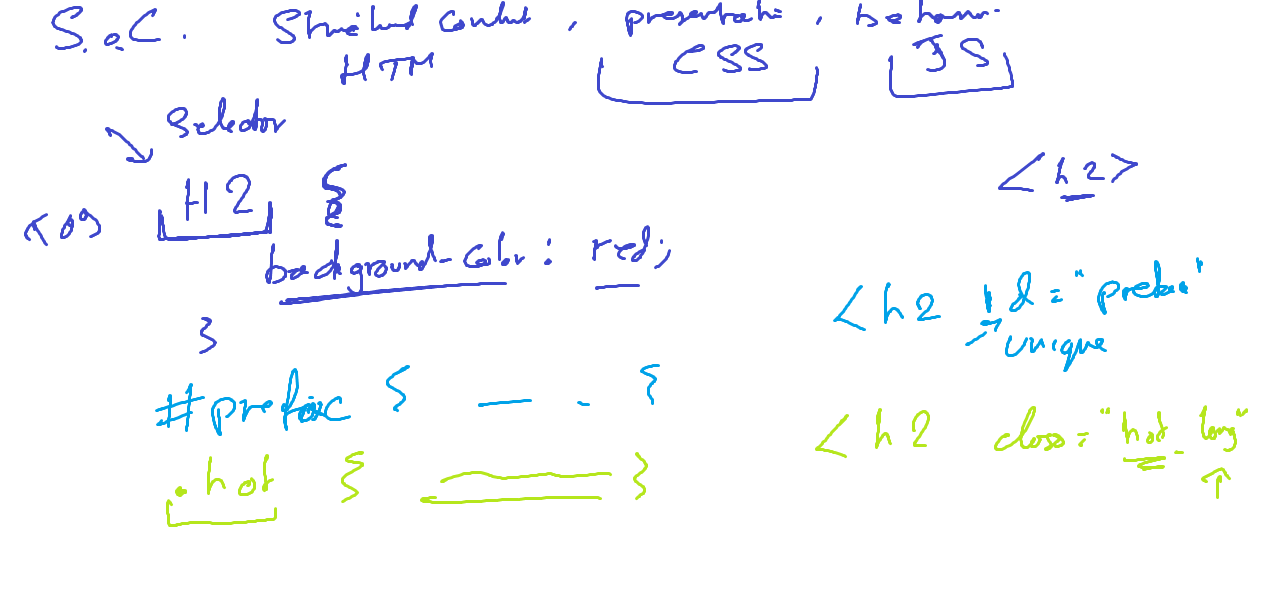 S.o.C. Structured Content, presentation, behavior.
HTM CSS JS
Selector
<h2>
Tag H2 {
background-color: red;
<h2 id="preface"
}
unique
#preface { — - . {
<h2 class="hot long"
.hot { }